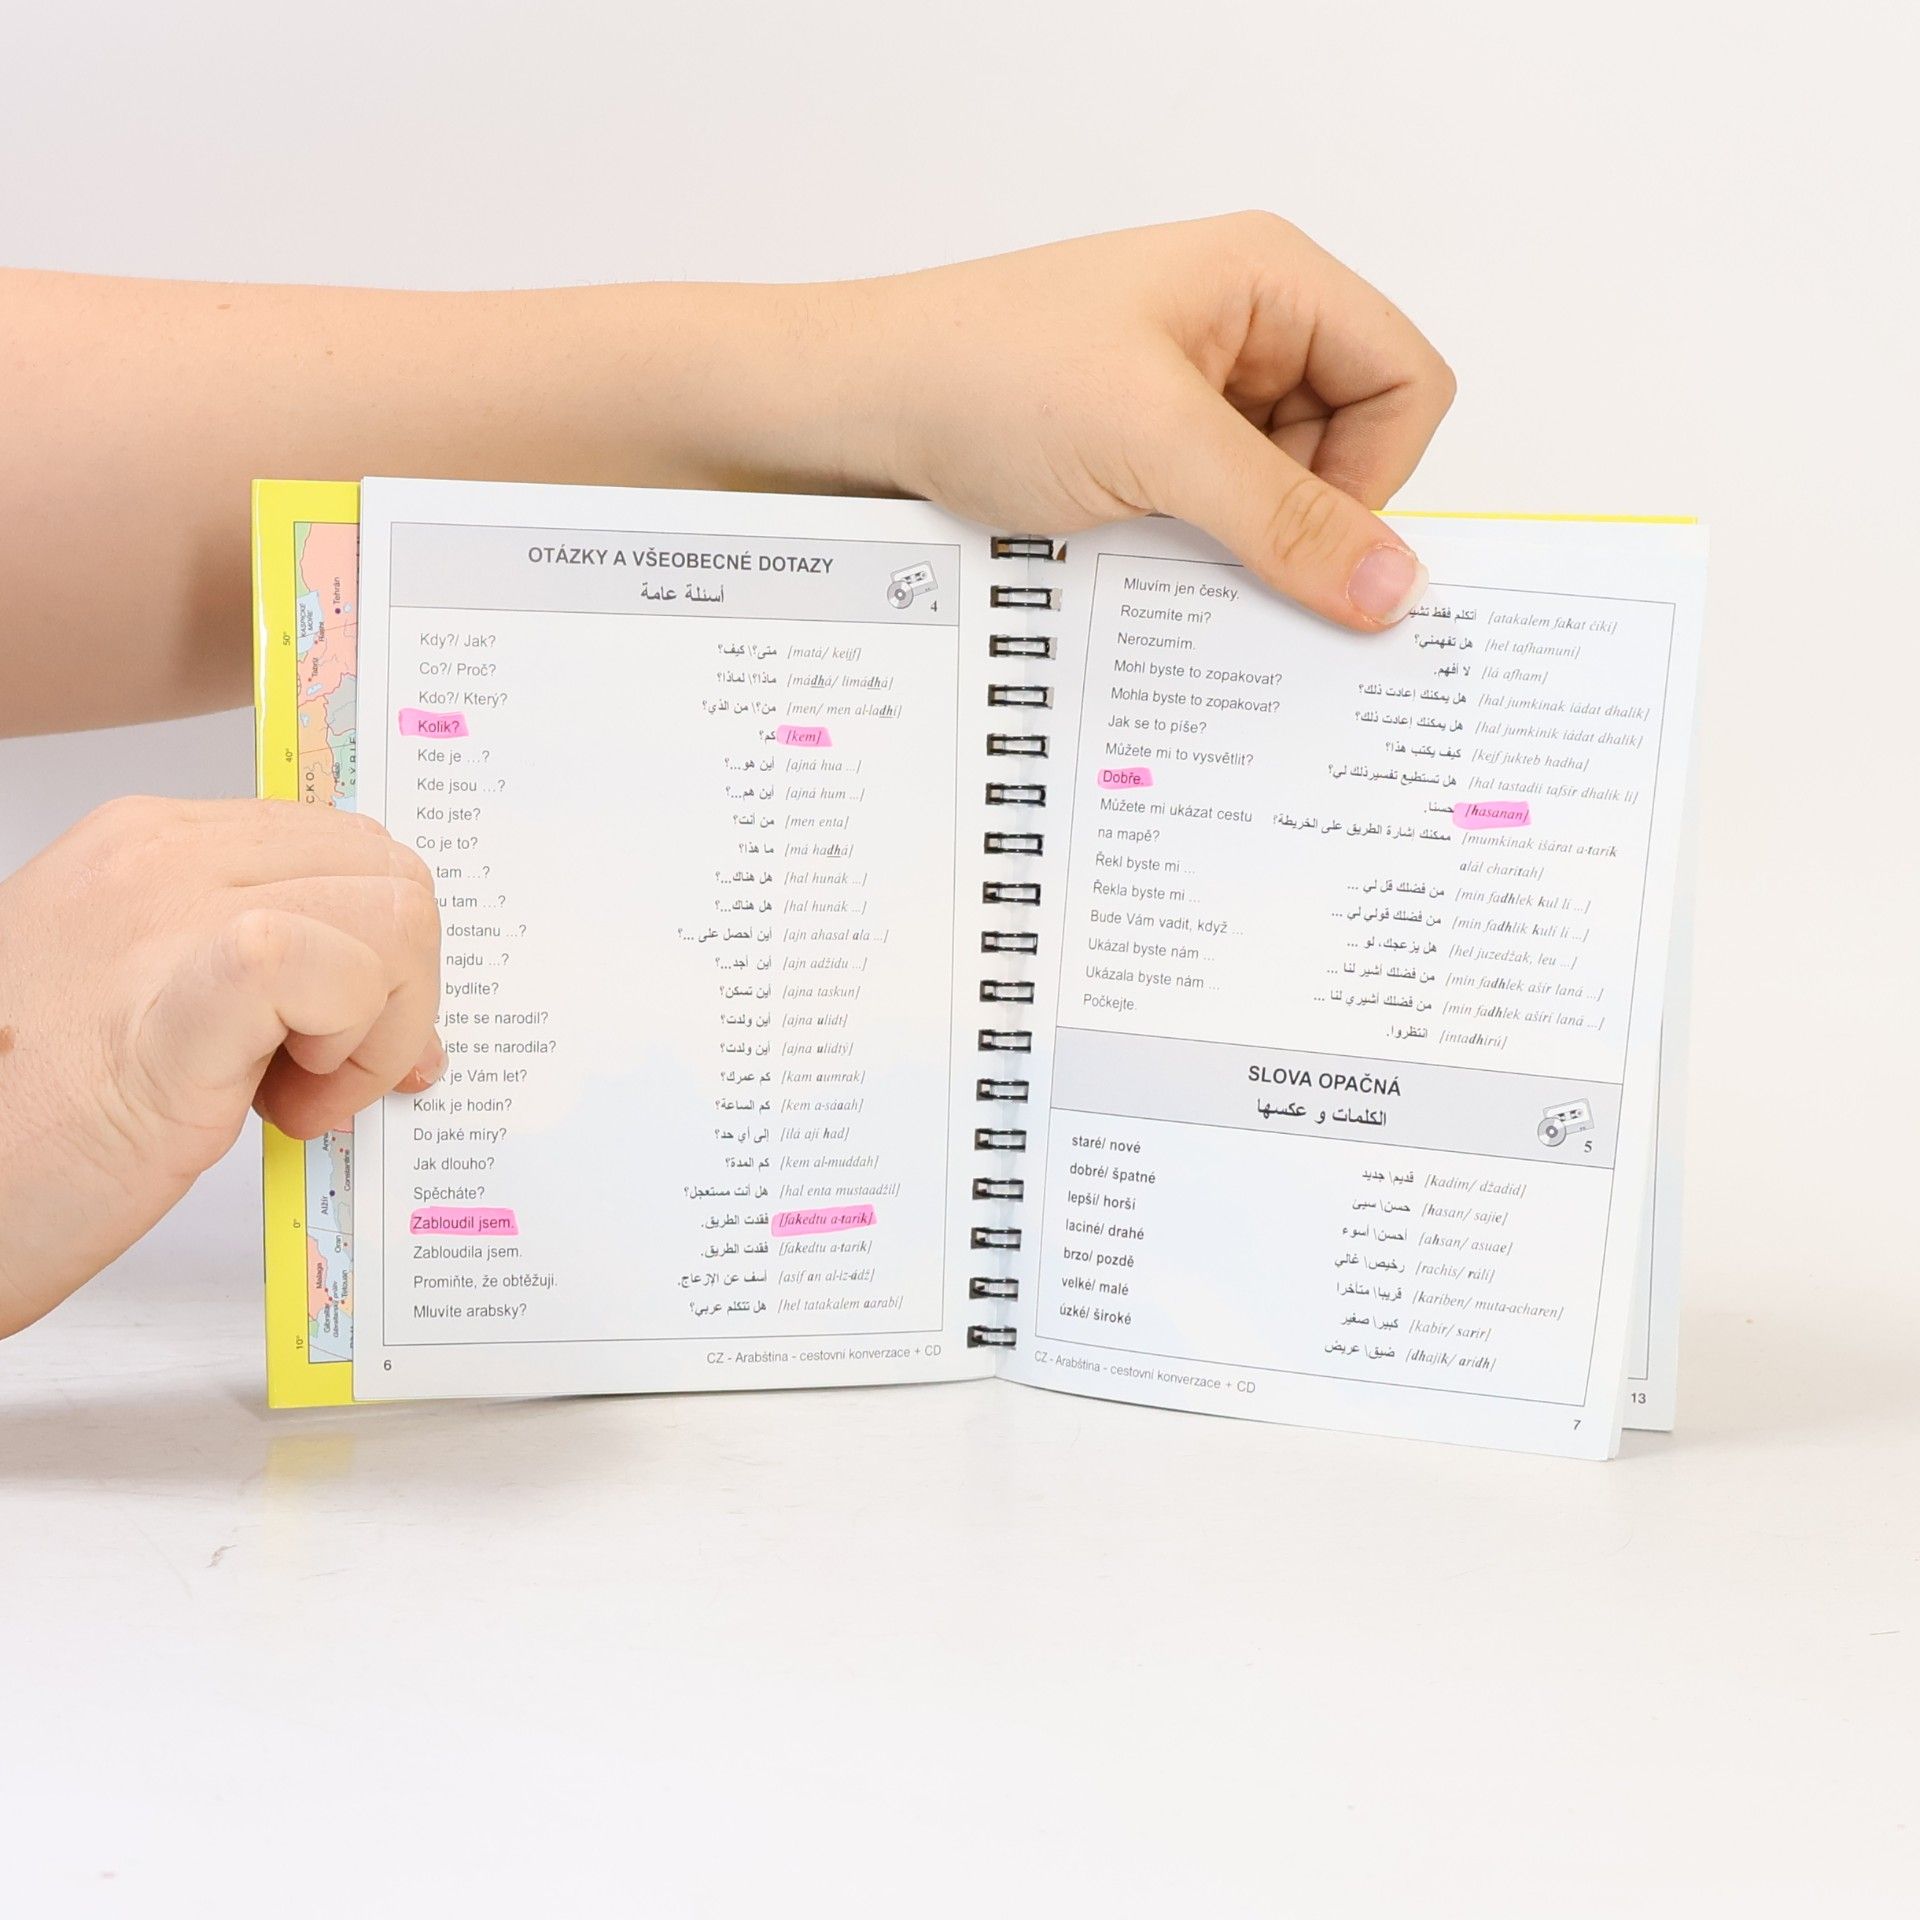 OTÁZKY A VŠEOBECNÉ DOTAZY
أسئلة عامة
4
Kdy?/ Jak? متى؟\ كيف؟ [matá/ keijf]
Co?/ Proč? ماذا؟\ لماذا؟ [mádhá/ limádhá]
Kdo?/ Který? من؟\ من الذي؟ [men/ men al-ladhí]
Kolik? كم؟ [kem]
Kde je ...? أين هو...؟ [ajná hua ...]
Kde jsou ...? أين هم...؟ [ajná hum ...]
Kdo jste? من أنت؟ [men enta]
Co je to? ما هذا؟ [má hadhá]
tam ...? هل هناك...؟ [hal hunák ...]
tam ...? هل هناك...؟ [hal hunák ...]
dostanu ...? أين أحصل على ...؟ [ajn ahasal ala ...]
najdu ...? أين أجد...؟ [ajn adžidu ...]
bydlíte? أين تسكن؟ [ajna taskun]
jste se narodil? أين ولدت؟ [ajna ulidt]
jste se narodila? أين ولدت؟ [ajna ulidtý]
je Vám let? كم عمرك؟ [kam aumrak]
Kolik je hodin? كم الساعة؟ [kem a-sáaah]
Do jaké míry? إلى أي حد؟ [ilá ají had]
Jak dlouho? كم المدة؟ [kem al-muddah]
Spěcháte? هل أنت مستعجل؟ [hal enta mustaadžil]
Zabloudil jsem. فقدت الطريق. [fakedtu a-tarík]
Zabloudila jsem. فقدت الطريق. [fakedtu a-tarík]
Promiňte, že obtěžuji. أسف عن الإزعاج. [asíf an al-iz-ádž]
Mluvíte arabsky? هل تتكلم عربي؟ [hel tatakalem aarabí]
6
CZ - Arabština - cestovní konverzace + CD
Mluvím jen česky. أتكلم فقط [atakalem fakat čikí]
Rozumíte mi? هل تفهمني؟ [hel tafhamuní]
Nerozumím. لا أفهم. [lá afham]
Mohl byste to zopakovat? هل يمكنك إعادت ذلك؟ [hal jumkinak iádat dhalik]
Mohla byste to zopakovat? هل يمكنك إعادت ذلك؟ [hal jumkinik iádat dhalik]
Jak se to píše? كيف يكتب هذا؟ [kejf jukteb hadha]
Můžete mi to vysvětlit? هل تستطيع تفسيرذلك لي؟ [hal tastadíi tafsír dhalik lí]
Dobře. حسنا. [hasanan]
Můžete mi ukázat cestu ممكنك إشارة الطريق على الخريطة؟ [mumkinak išárat a-tarík
na mapě? alál charítah]
Řekl byste mi ... من فضلك قل لي ... [min fadhlek kul lí ...]
Řekla byste mi ... من فضلك قولي لي ... [min fadhlik kulí lí ...]
Bude Vám vadit, když ... هل يزعجك، لو ... [hel juzedžák, leu ...]
Ukázal byste nám ... من فضلك أشير لنا ... [min fadhlek ašír laná ...]
Ukázala byste nám ... من فضلك أشيري لنا ... [min fadhlek ašírí laná ...]
Počkejte. انتظروا. [intadhirú]
SLOVA OPAČNÁ
الكلمات و عكسها
5
staré/ nové قديم\ جديد [kadím/ džadíd]
dobré/ špatné حسن\ سيئ [hasan/ sajie]
lepší/ horší أحسن\ أسوء [ahsan/ asuae]
laciné/ drahé رخيص\ غالي [rachís/ rálí]
brzo/ pozdě قريبا\ متأخرا [kariben/ muta-acharen]
velké/ malé كبير\ صغير [kabír/ sarír]
úzké/ široké ضيق\ عريض [dhajik/ arídh]
CZ - Arabština - cestovní konverzace + CD
7
13
50°
KASPICKÉ
MOŘE
Tehrán
40°
SÝRIE
0°
Alžír
Constantine
Oran
Malaga
Gibraltar
10°